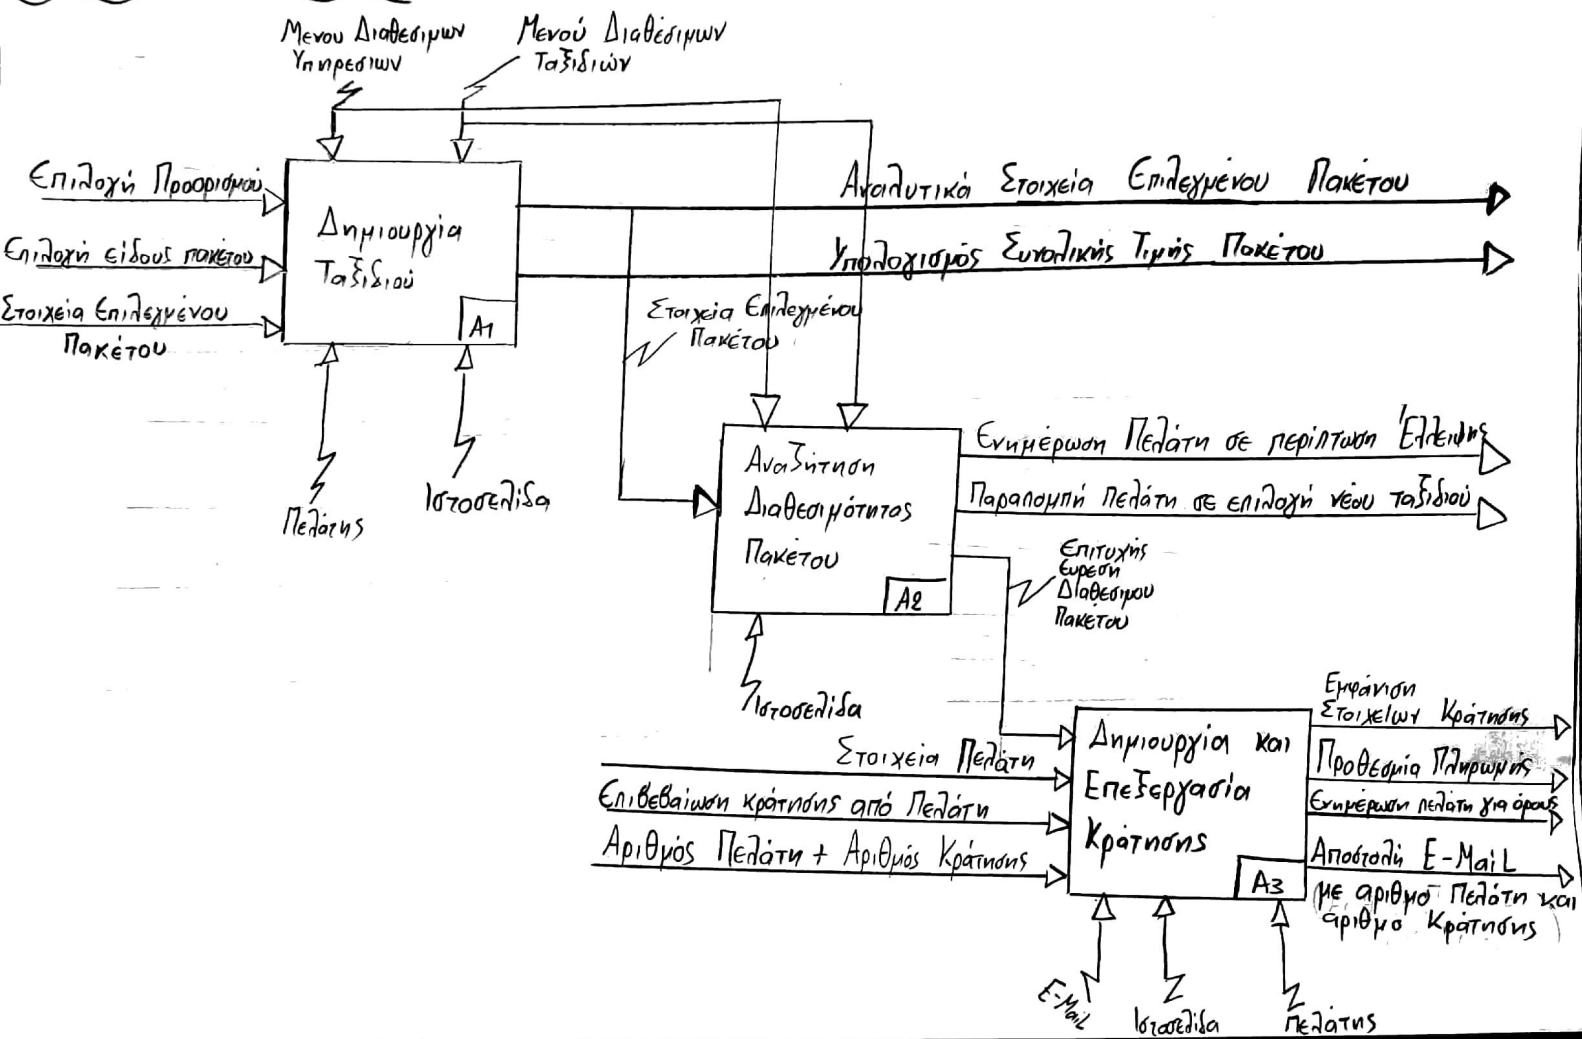 Μενου Διαθέσιμων
Υπηρεσιων
Μενού Διαθέσιμων
Ταξιδιών
Επιλογή Προορισμού
Επιλογή είδους πακέτου
Στοιχεία Επιλεγμένου
Πακέτου
Δημιουργία
Ταξιδιού
A1
Αναλυτικά Στοιχεία Επιλεγμένου Πακέτου
Υπολογισμός Συνολικής Τιμής Πακέτου
Στοιχεία Επιλεγμένου
Πακέτου
Πελάτης
Ιστοσελίδα
Αναζήτηση
Διαθεσιμότητας
Πακέτου
A2
Ενημέρωση Πελάτη σε περίπτωση Έλλειψης
Παραπομπή Πελάτη σε επιλογή νέου ταξιδιού
Επιτυχής
Ευρεση
Διαθεσιμου
Πακέτου
Ιστοσελίδα
Στοιχεία Πελάτη
Επιβεβαίωση κράτησης από Πελάτη
Αριθμός Πελάτη + Αριθμός Κράτησης
Δημιουργία και
Επεξεργασία
Κράτησης
A3
Εμφάνιση
Στοιχείων Κράτησης
Προθεσμία Πληρωμής
Ενημέρωση πελάτη για όρους
Αποστολή E-Mail
με αριθμο Πελάτη και
αριθμο Κράτησης
E-Mail
Ιστοσελίδα
Πελάτης